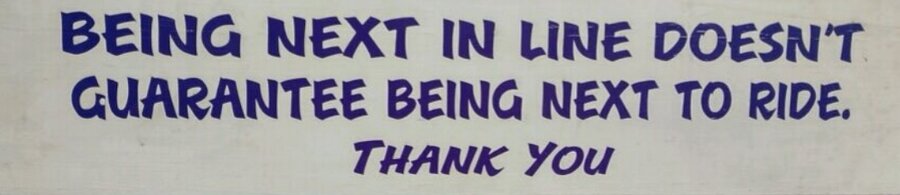 BEING NEXT IN LINE DOESN'T
GUARANTEE BEING NEXT TO RIDE.
THANK YOU